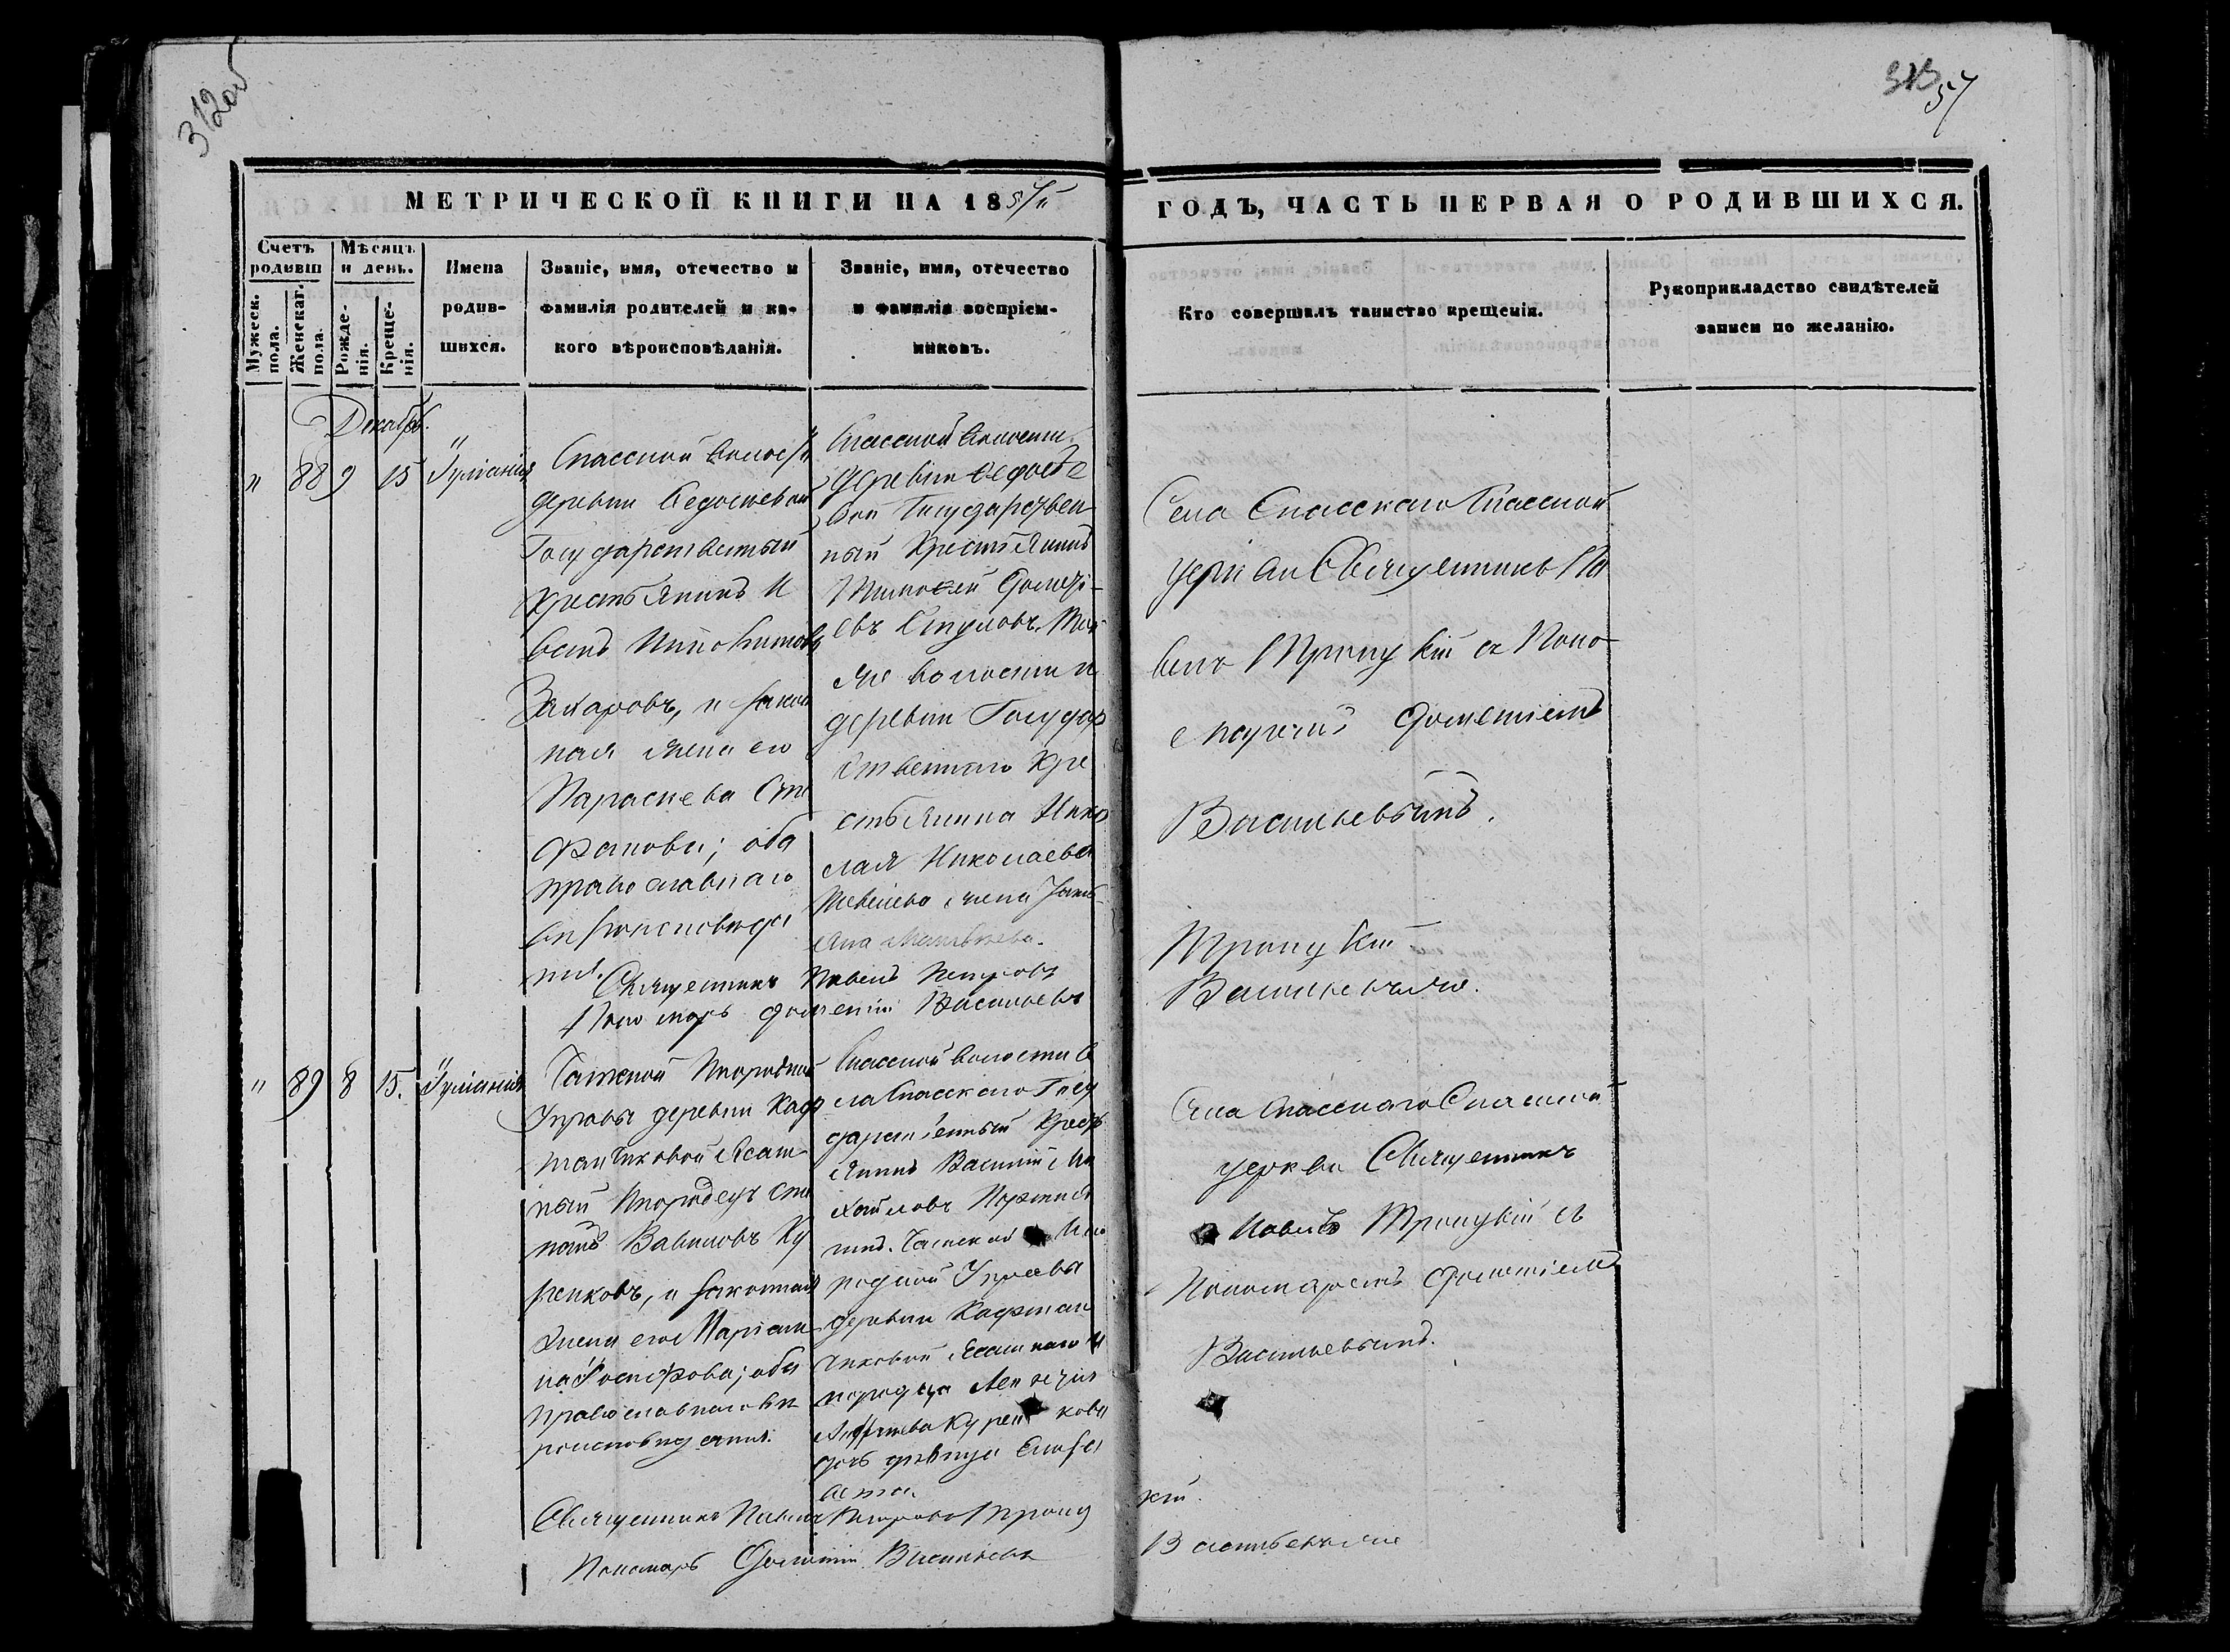 312об
313
57
МЕТРИЧЕСКОЙ КНИГИ НА 1857й
ГОДЪ, ЧАСТЬ ПЕРВАЯ О РОДИВШИХСЯ.
Счетъ родивш
Мужеск. пола.
Женскаг. пола.
Мѣсяцъ и день.
Рожде-нія.
Креще-нія.
Имена
родив-
шихся.
Званіе, имя, отечество и
фамилія родителей и ка-
кого вѣроисповѣданія.
Званіе, имя, отечество
и фамилія воспріем-
никовъ.
Кто совершалъ таинство крещенія.
Рукоприкладство свидѣтелей
записи по желанію.
Декабрь.
" 88 9 15 Іуліанія
Спасской волости
деревни
Государственный
Крестьянинъ И
ванъ
Захаровъ, и закон
ная жена его
Параскева Сте
фанова; оба
православнаго
вѣроисповѣда
нія.
Спасской волости
деревни
вой Государствен
ный Крестьянинъ
Тимофей
евъ Стуловъ. Той
же волости и
деревни Государ
ственнаго Кре
стьянина Нико
лая Николаева
жена
Матвѣева.
Села Спасскаго Спасской
церкви Священникъ Па
велъ Троицкій съ Поно
маремъ Дометіемъ
Васильевымъ.
Священникъ Павелъ Петровъ Троицкій
Пономарь Дометій Васильевъ Васильевъ же.
" 89 8 15. Іуліанія
Инородной
Управы деревни Каф
танчиковой Ясаш
ный Инородецъ Сте
панъ Вавиловъ Ку
ренковъ, и законная
жена его Маріам
на Іосифова; оба
православнаго вѣ
роисповѣданія.
Спасской волости Се
ла Спасскаго Госу
дарственный Кресть
янинъ Василій Ми
хайловъ
Ино
родной Управы
деревни Кафтан
чиковой Ясашнаго И
нородца Алексѣя
Куренкова
дочь дѣвица Елиза
вета.
Села Спасскаго Спасской
церкви Священникъ
Павелъ Троицкій съ
Пономаремъ Дометіемъ
Васильевымъ.
Священникъ Павелъ Петровъ Троиц кій.
Пономарь Дометій Васильевъ Васильевъ же